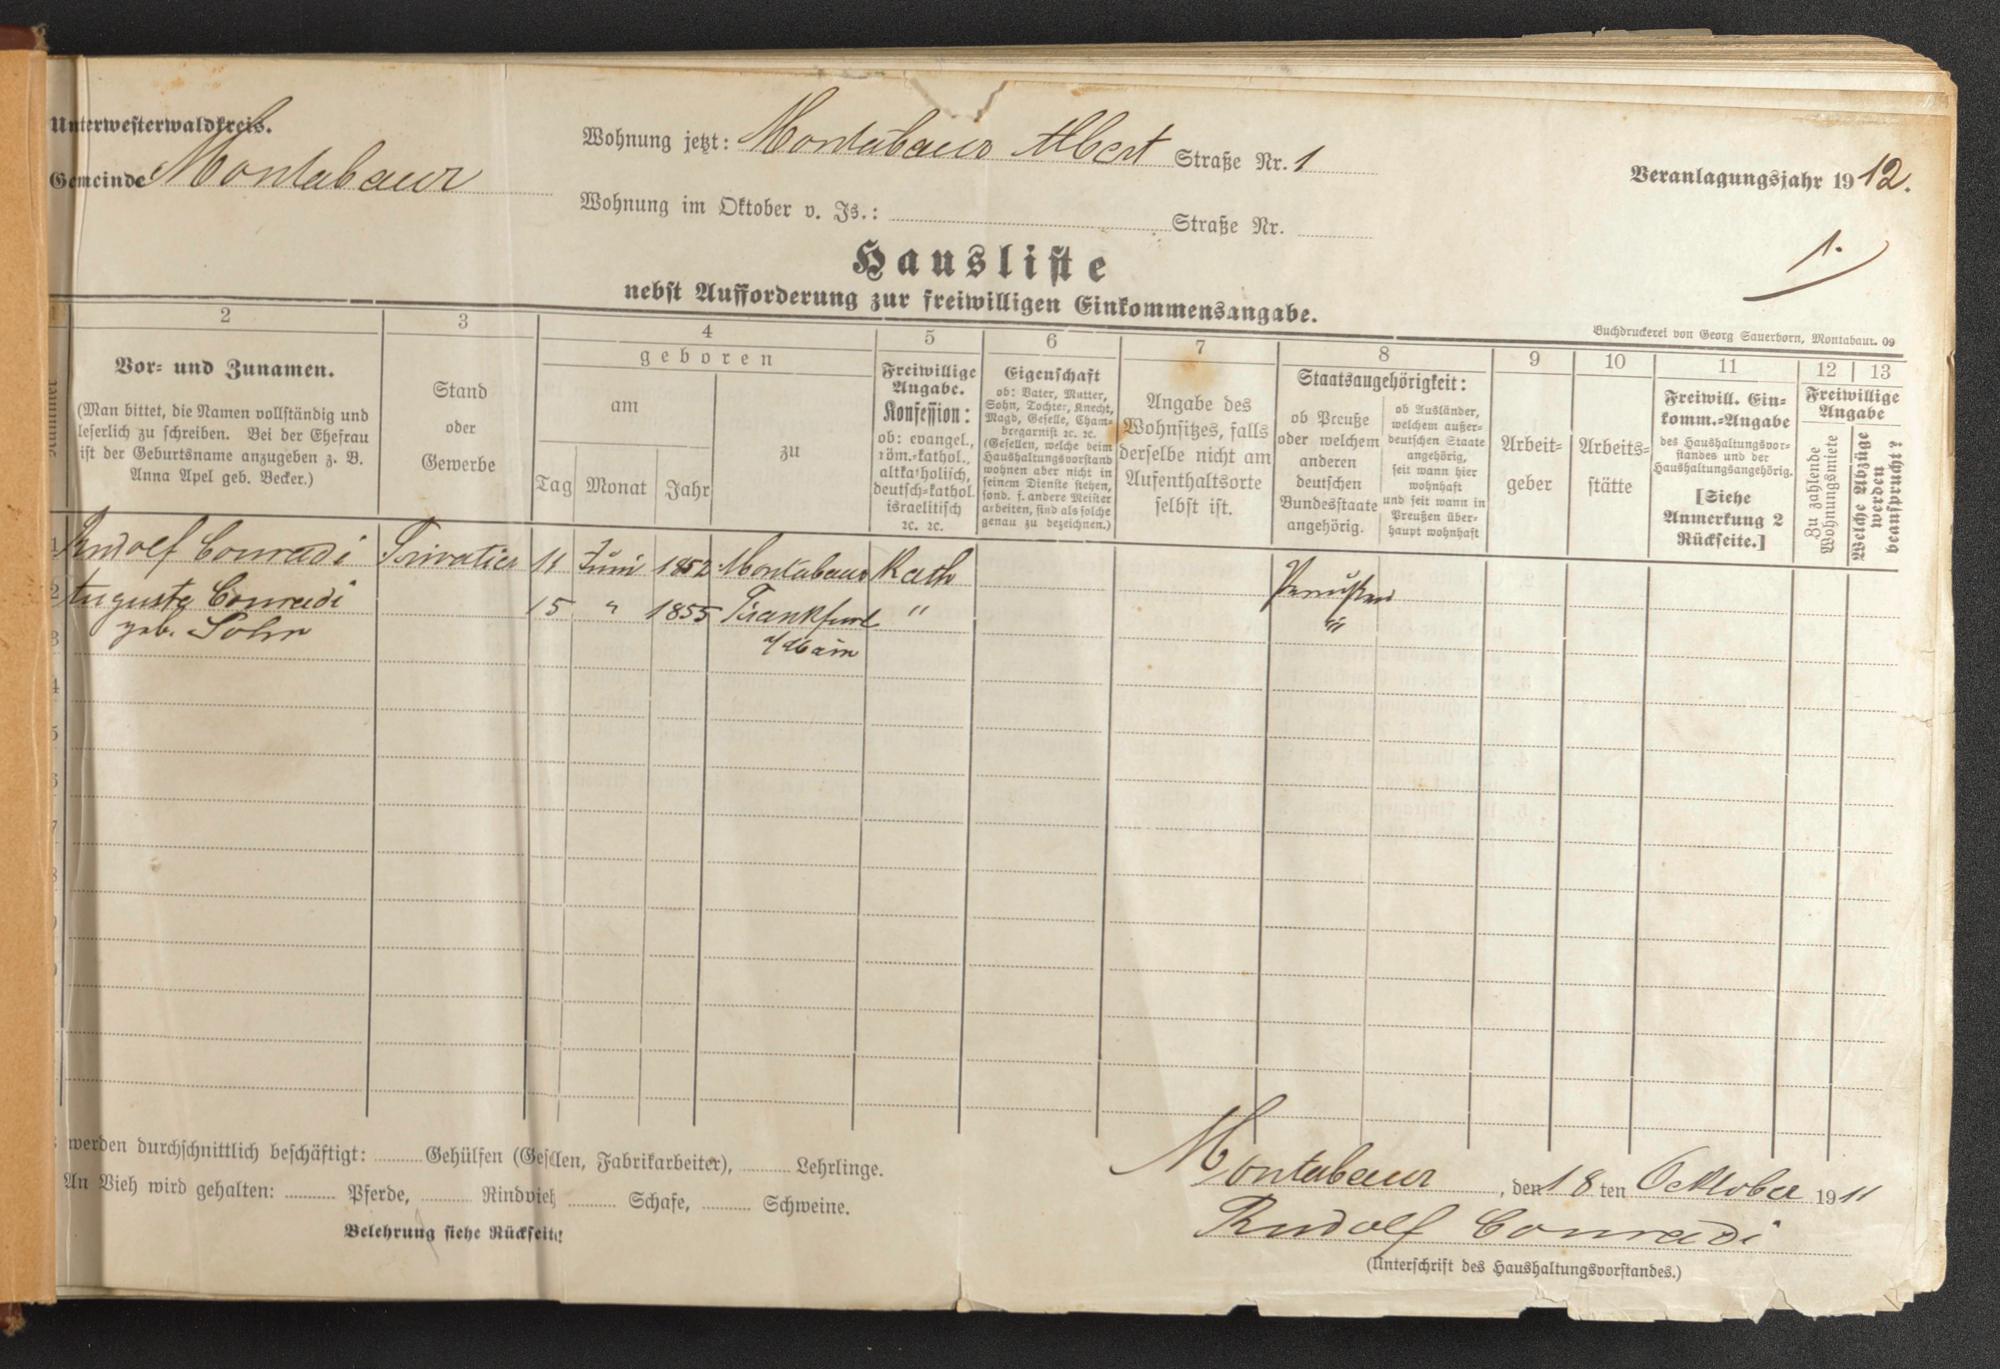 Unterwesterwaldkreis.
Gemeinde Montabaur
Wohnung jetzt: Montabaur Albert Straße Nr. 1
Wohnung im Oktober v. Js.: Straße Nr.
Veranlagungsjahr 1912.
1.
Hausliste
nebst Aufforderung zur freiwilligen Einkommensangabe.
Buchdruckerei von Georg Sauerborn, Montabaur. 09
1 2 3 4 5 6 7 8 9 10 11 12 13
Nummer
Vor- und Zunamen.
(Man bittet, die Namen vollständig und
leserlich zu schreiben. Bei der Ehefrau
ist der Geburtsname anzugeben z. B.
Anna Apel geb. Becker.)
Stand
oder
Gewerbe
geboren
am
Tag Monat Jahr
zu
Freiwillige
Angabe.
Konfession:
ob: evangel.,
röm.-kathol.,
altkatholisch,
deutsch-kathol.
israelitisch
ꝛc. ꝛc.
Eigenschaft
ob: Vater, Mutter,
Sohn, Tochter, Knecht,
Magd, Geselle, Cham-
bregarnist ꝛc. ꝛc.
(Gesellen, welche beim
Haushaltungsvorstand
wohnen aber nicht in
seinem Dienste stehen,
sond. f. andere Meister
arbeiten, sind als solche
genau zu bezeichnen.)
Angabe des
Wohnsitzes, falls
derselbe nicht am
Aufenthaltsorte
selbst ist.
Staatsangehörigkeit:
ob Preuße
oder welchem
anderen
deutschen
Bundesstaate
angehörig.
ob Ausländer,
welchem außer-
deutschen Staate
angehörig,
seit wann hier
wohnhaft
und seit wann in
Preußen über-
haupt wohnhaft
Arbeit-
geber
Arbeits-
stätte
Freiwill. Ein-
komm.-Angabe
des Haushaltungsvor-
standes und der
Haushaltungsangehörig.
[Siehe
Anmerkung 2
Rückseite.]
Freiwillige
Angabe
Zu zahlende
Wohnungsmiete
Welche Abzüge
werden
beansprucht?
1 Rudolf Conradi Privatier 11 Juni 1852 Montabaur Kath Preußen
2 Auguste Conradi 15 " 1855 Frankfurt " "
geb. Sohn a/Main
3
4
5
6
7
8
werden durchschnittlich beschäftigt: Gehülfen (Gesellen, Fabrikarbeiter), Lehrlinge.
An Vieh wird gehalten: Pferde, Rindvieh Schafe, Schweine.
Belehrung siehe Rückseite!
Montabaur, den 18ten Oktober 1911
Rudolf Conradi
(Unterschrift des Haushaltungsvorstandes.)